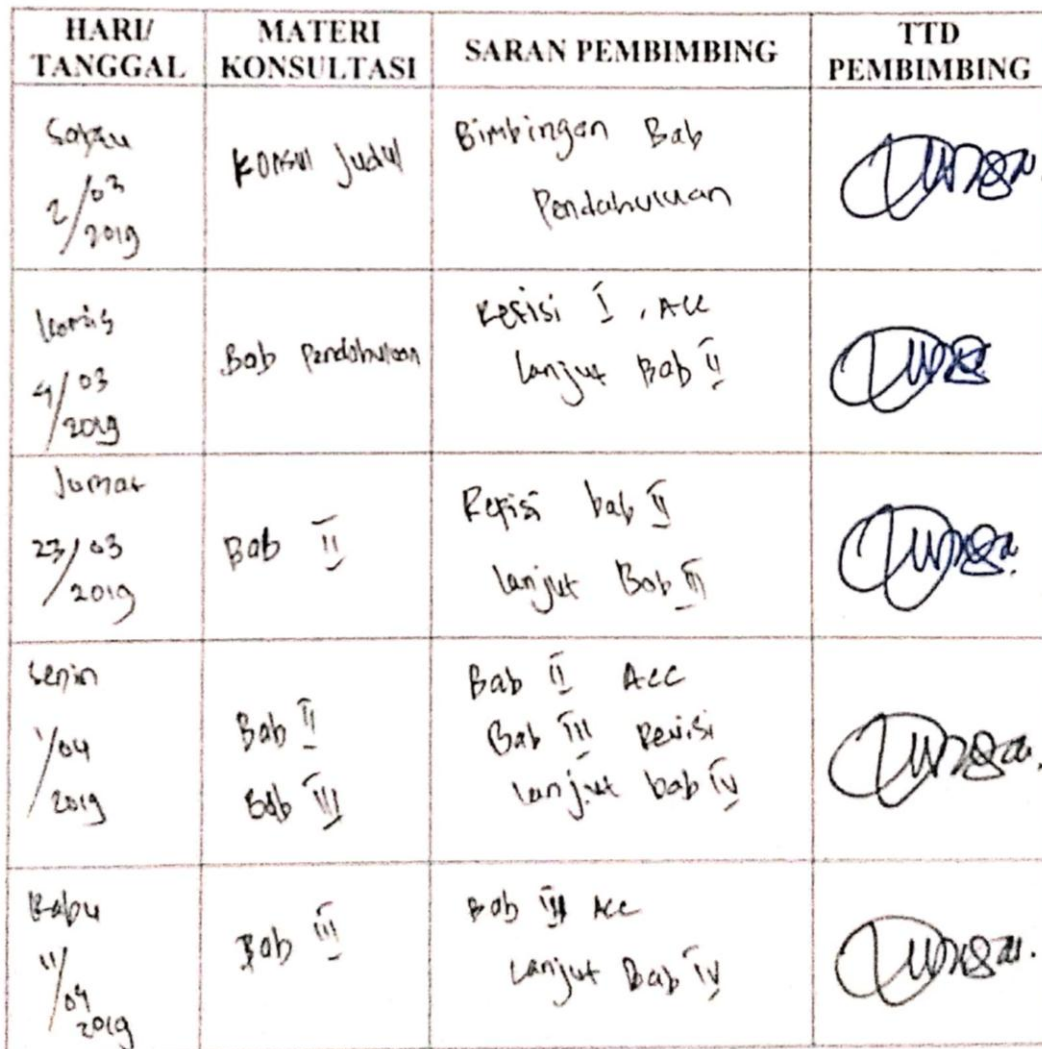 HARI/
TANGGAL
MATERI
KONSULTASI
SARAN PEMBIMBING
TTD
PEMBIMBING
2/03
2019
Konsul Judul
Bimbingan Bab
Pendahuluan
Kamis
4/03
2019
Bab Pendahuluan
Refisi I, ACC
lanjut Bab II
Jumat
23/03
2019
Bab II
Refisi bab II
lanjut Bab III
Senin
1/04
2019
Bab II
Bab III
Bab II ACC
Bab III Revisi
lanjut bab IV
Rabu
11/04
2019
Bab III
Bab III ACC
Lanjut Bab IV